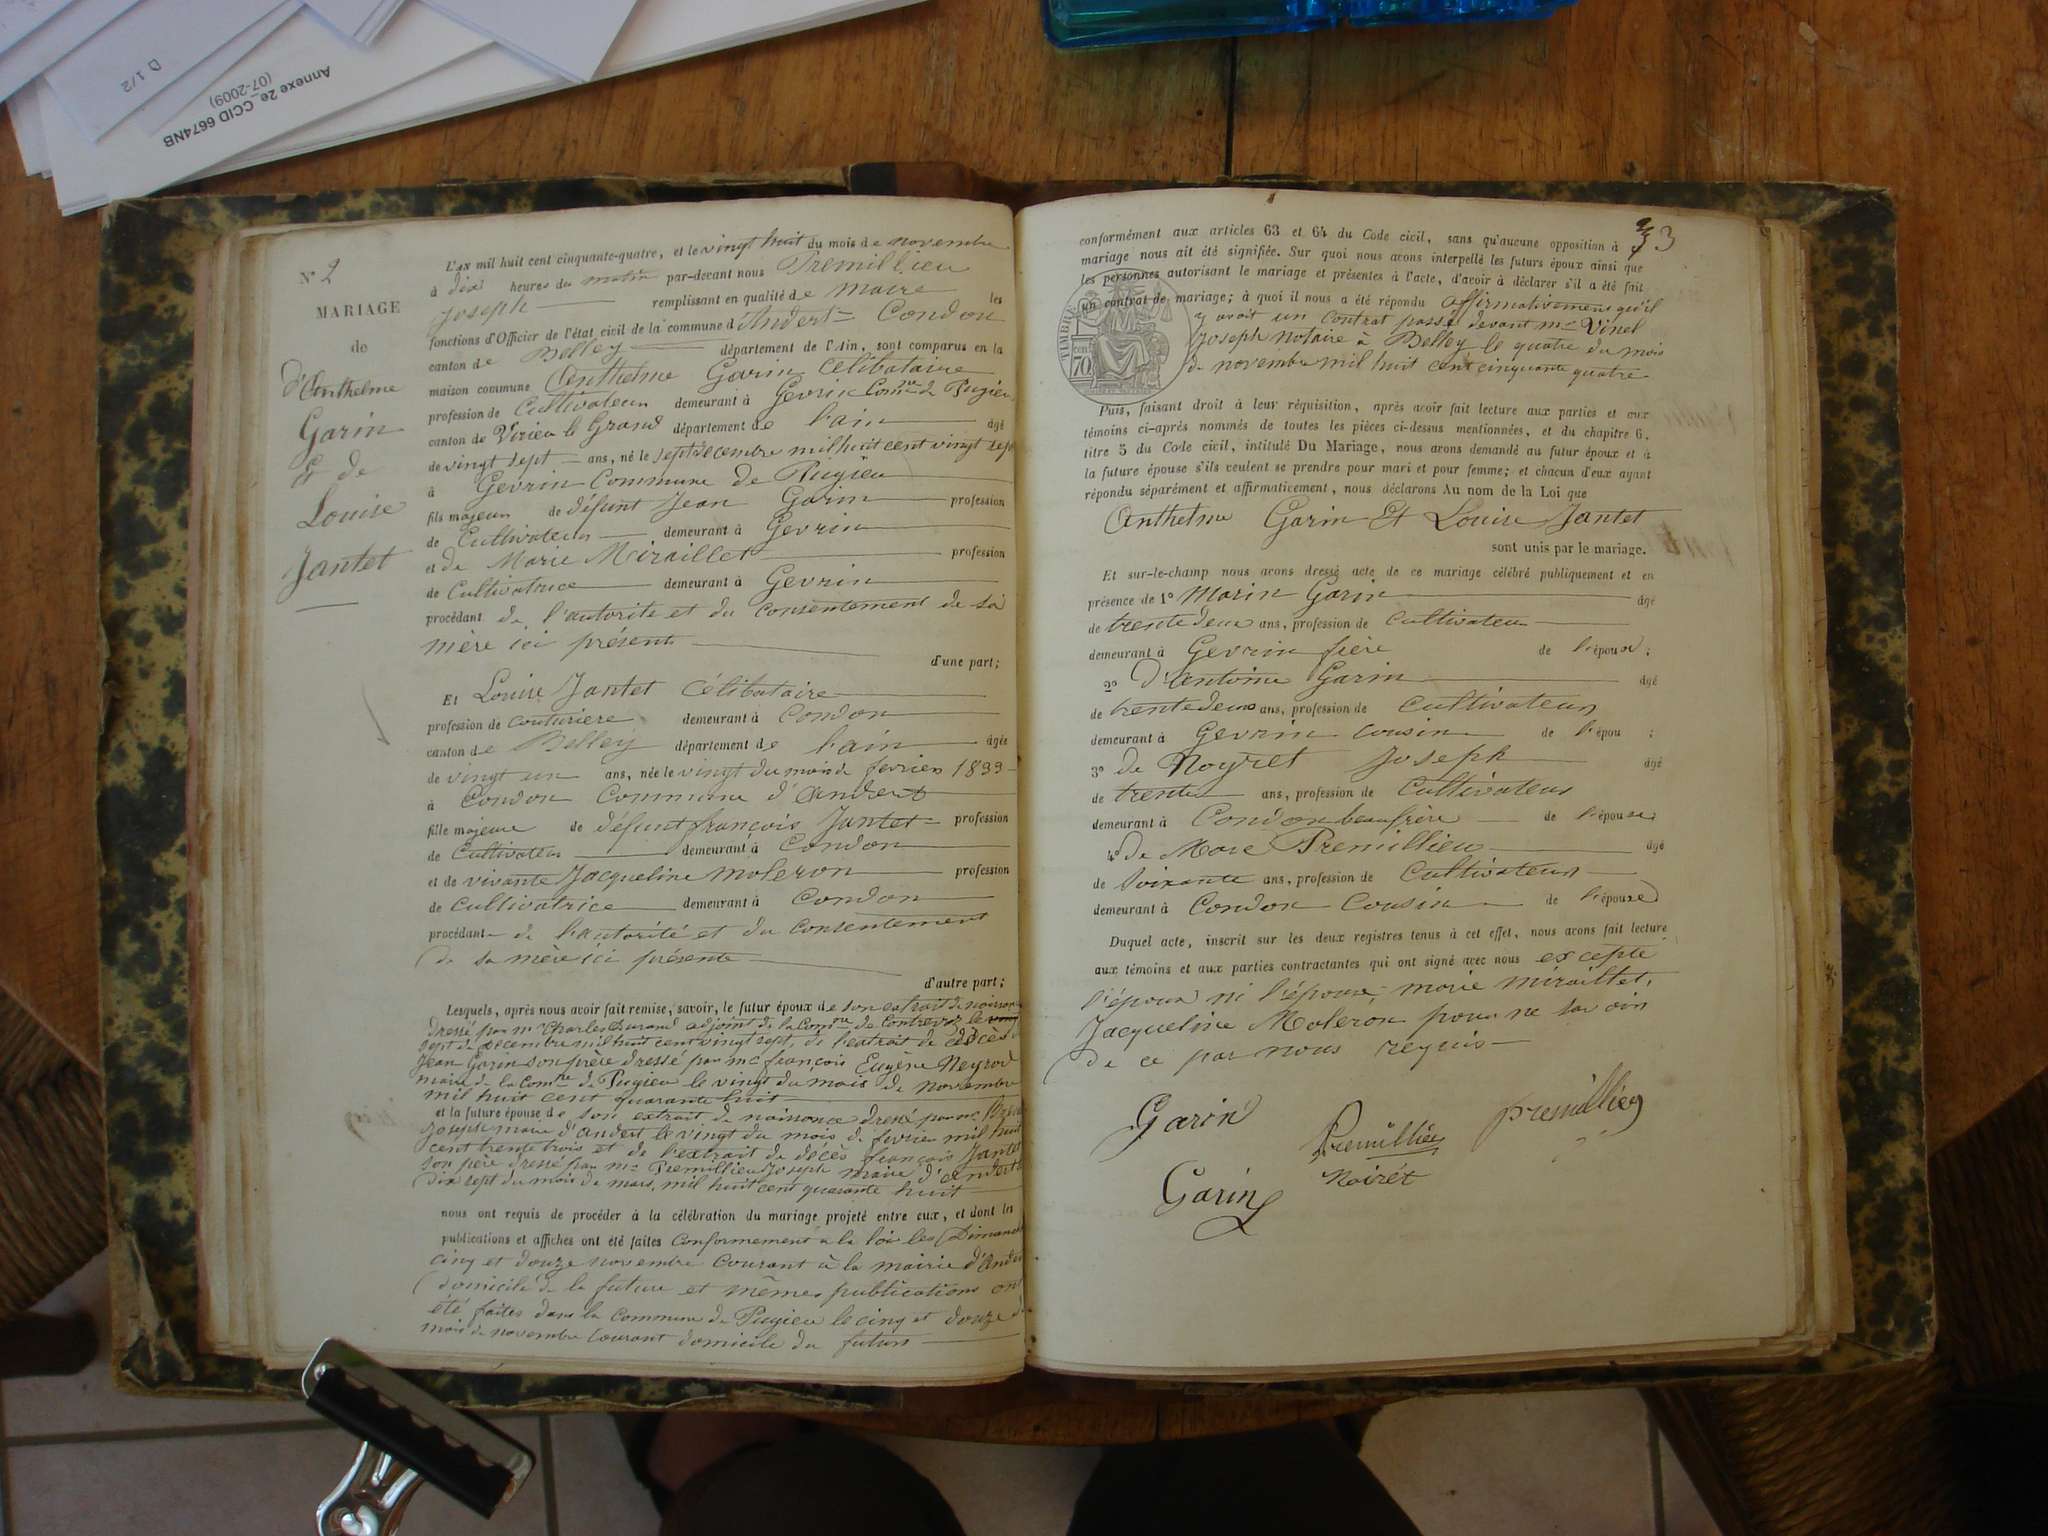 D 1/2
Annexe 2e_CCID 6674NB
(07-2009)
N° 2
MARIAGE
de
d'Anthelme
Garin
& de
Louise
Jantet
L'an mil huit cent cinquante-quatre, et le vingt huit du mois de novembre
à dix heures du matin par-devant nous Premillieu
Joseph remplissant en qualité de maire les
fonctions d'Officier de l'état civil de la commune d'Andert-Condon
canton de Belley département de l'Ain, sont comparus en la
maison commune Anthelme Garin célibataire
profession de Cultivateur demeurant à Gevrin Comne de Pugieu
canton de Virieu le Grand département de l'ain âgé
de vingt sept ans, né le sept décembre mil huit cent vingt sept
à Gevrin Commune de Pugieu
fils majeur de défunt Jean Garin profession
de Cultivateur demeurant à Gevrin
et de Marie Miraillet profession
de Cultivatrice demeurant à Gevrin
procédant de l'autorité et du consentement de sa
mère ici présente
d'une part;
Et Louise Jantet Célibataire
profession de couturière demeurant à Condon
canton de Belley département de l'ain âgée
de vingt un ans, née le vingt du mois de fevrier 1833
à Condon Commune d'Andert
fille majeure de défunt françois Jantet profession
de Cultivateur demeurant à Condon
et de vivante Jacqueline moleron profession
de Cultivatrice demeurant à Condon
procédant de l'autorité et du consentement
de sa mère ici présente
d'autre part;
Lesquels, après nous avoir fait remise, savoir, le futur époux de son extrait de naissance
dressé par mr Charles Durand adjoint de la Comne de Contrevoz le
sept de décembre mil huit cent vingt sept, de l'extrait de décès
Jean Garin son père dressé par mr françois Eugène Neyrod
maire de la Comne de Pugieu le vingt du mois de novembre
mil huit cent quarante huit
et la future épouse de son extrait de naissance dressé par mr
Joseph maire d'andert le vingt du mois de fevrier mil huit
cent trente trois et de l'extrait de décès françois Jantet
son père dressé par mr Premillieu Joseph maire d'andert le
dix sept du mois de mars, mil huit cent quarante huit
nous ont requis de procéder à la célébration du mariage projeté entre eux, et dont les
publications et affiches ont été faites Conformement à la loi les Dimanches
cinq et douze novembre courant à la mairie d'Andert
domicile de la future et mêmes publications ont
été faites dans la commune de Pugieu le cinq et douze du
mois de novembre courant domicile du futur
33
conformément aux articles 63 et 64 du Code civil, sans qu'aucune opposition à
mariage nous ait été signifiée. Sur quoi nous avons interpellé les futurs époux ainsi que
les personnes autorisant le mariage et présentes à l'acte, d'avoir à déclarer s'il a été fait
un contrat de mariage; à quoi il nous a été répondu affirmativement qu'il
y avait un contrat passé devant mr Vinel
Joseph notaire à Belley le quatre du mois
de novembre mil huit cent cinquante quatre
TIMBRE
70
Puis, faisant droit à leur réquisition, après avoir fait lecture aux parties et aux
témoins ci-après nommés de toutes les pièces ci-dessus mentionnées, et du chapitre 6,
titre 5 du Code civil, intitulé Du Mariage, nous avons demandé au futur époux et à
la future épouse s'ils veulent se prendre pour mari et pour femme; et chacun d'eux ayant
répondu séparément et affirmativement, nous déclarons Au nom de la Loi que
Anthelme Garin Et Louise Jantet
sont unis par le mariage.
Et sur-le-champ nous avons dressé acte de ce mariage célébré publiquement et en
présence de 1° Marin Garin âgé
de trente deux ans, profession de Cultivateur
demeurant à Gevrin frère de l'époux;
2° d'Antoine Garin âgé
de trente deux ans, profession de Cultivateur
demeurant à Gevrin cousin de l'épou ;
3° de Noyret Joseph âgé
de trente ans, profession de Cultivateur
demeurant à Condon beaufrère de l'épouse
4° de Marc Premillieu âgé
de soixante ans, profession de Cultivateur
demeurant à Condon Cousin de l'épouse
Duquel acte, inscrit sur les deux registres tenus à cet effet, nous avons fait lecture
aux témoins et aux parties contractantes qui ont signé avec nous excepté
l'époux ni l'épouse, marie miraillet,
Jacqueline Moleron pour ne savoir
de ce par nous requis
Garin
Premillieu
premillieu
Noirét
Garin